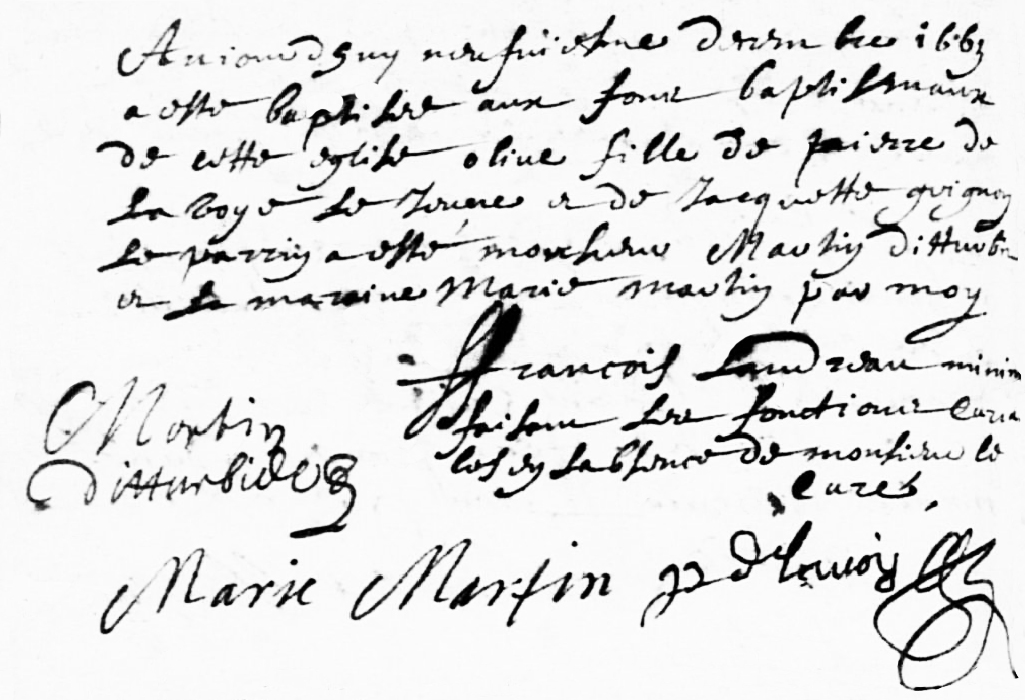 Aujourdhuy neufuiesme decembre 1663
a esté baptisee aux fons baptismaux
de cette eglise olive fille de pierre de
La voye Le Jeune et de Jacquette
Le parrin a esté monsieur Martin ditturbi
et La maraine Marie martin par moy
francois Landreau minim
faisant Les fonctions Curia
les en Labsence de monsieur le
Curés,
Martin
ditturbide
Marie Martin